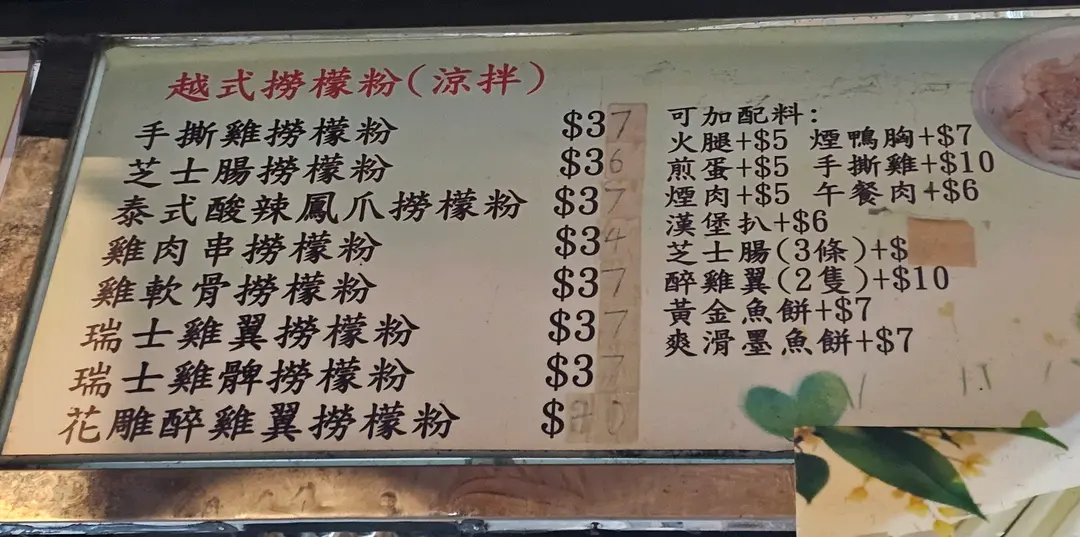 越式撈檬粉(涼拌)
手撕雞撈檬粉 $37
芝士腸撈檬粉 $36
泰式酸辣鳳爪撈檬粉 $37
雞肉串撈檬粉 $34
雞軟骨撈檬粉 $37
瑞士雞翼撈檬粉 $37
瑞士雞髀撈檬粉 $37
花雕醉雞翼撈檬粉 $40
可加配料:
火腿+$5 煙鴨胸+$7
煎蛋+$5 手撕雞+$10
煙肉+$5 午餐肉+$6
漢堡扒+$6
芝士腸(3條)+$
醉雞翼(2隻)+$10
黃金魚餅+$7
爽滑墨魚餅+$7